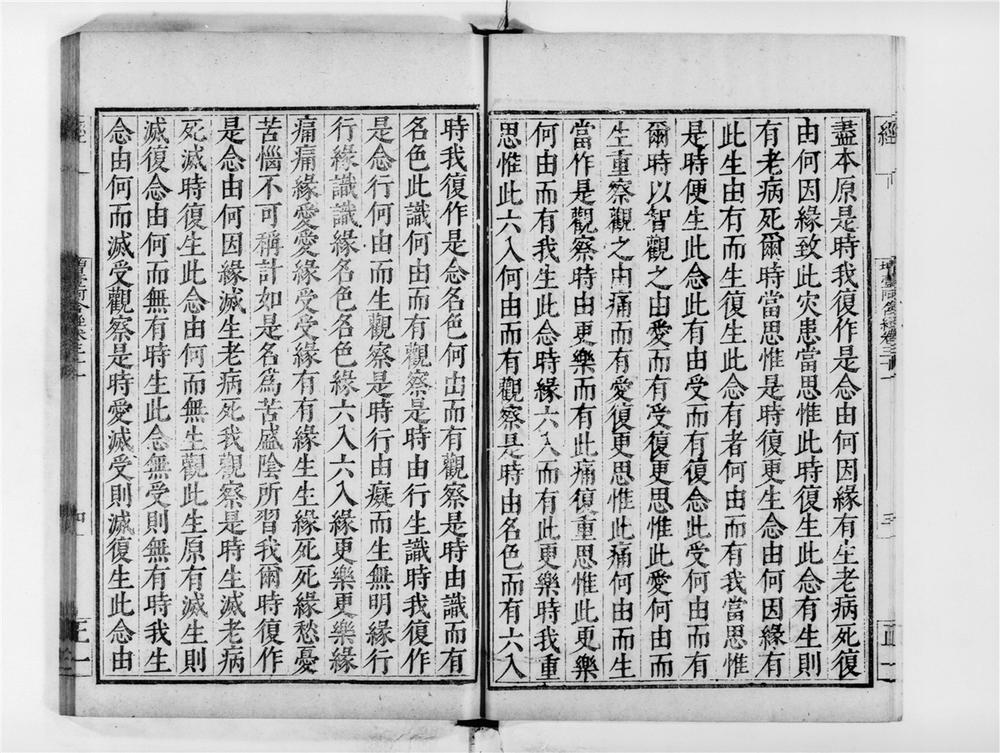 經
盡本原是時我復作是念由何因緣有生老病死復
由何因緣致此灾患當思惟此時復生此念有生則
有老病死爾時當思惟是時復更生念由何因緣有
此生由有而生復生此念有者何由而有我當思惟
是時便生此念此有由受而有復念此受何由而有
爾時以智觀之由愛而有受復更思惟此愛何由而
生重察觀之由痛而有愛復更思惟此痛何由而生
當作是觀察時由更樂而有此痛復重思惟此更樂
何由而有我生此念時緣六入而有此更樂時我重
思惟此六入何由而有觀察是時由名色而有六入
時我復作是念名色何由而有觀察是時由識而有
名色此識何由而有觀察是時由行生識時我復作
是念行何由而生觀察是時行由癡而生無明緣行
行緣識識緣名色名色緣六入六入緣更樂更樂緣
痛痛緣愛愛緣受受緣有有緣生生緣死死緣愁憂
苦惱不可稱計如是名為苦盛陰所習我爾時復作
是念由何因緣滅生老病死我觀察是時生滅老病
死滅時復生此念由何而無生觀此生原有滅生則
滅復念由何而無有時生此念無受則無有時我生
念由何而滅受觀察是時愛滅受則滅復生此念由